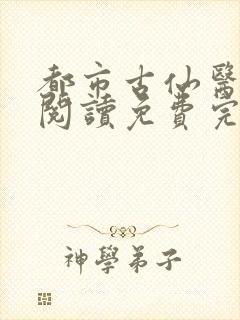 都市古仙醫
閱讀免費完
神學弟子